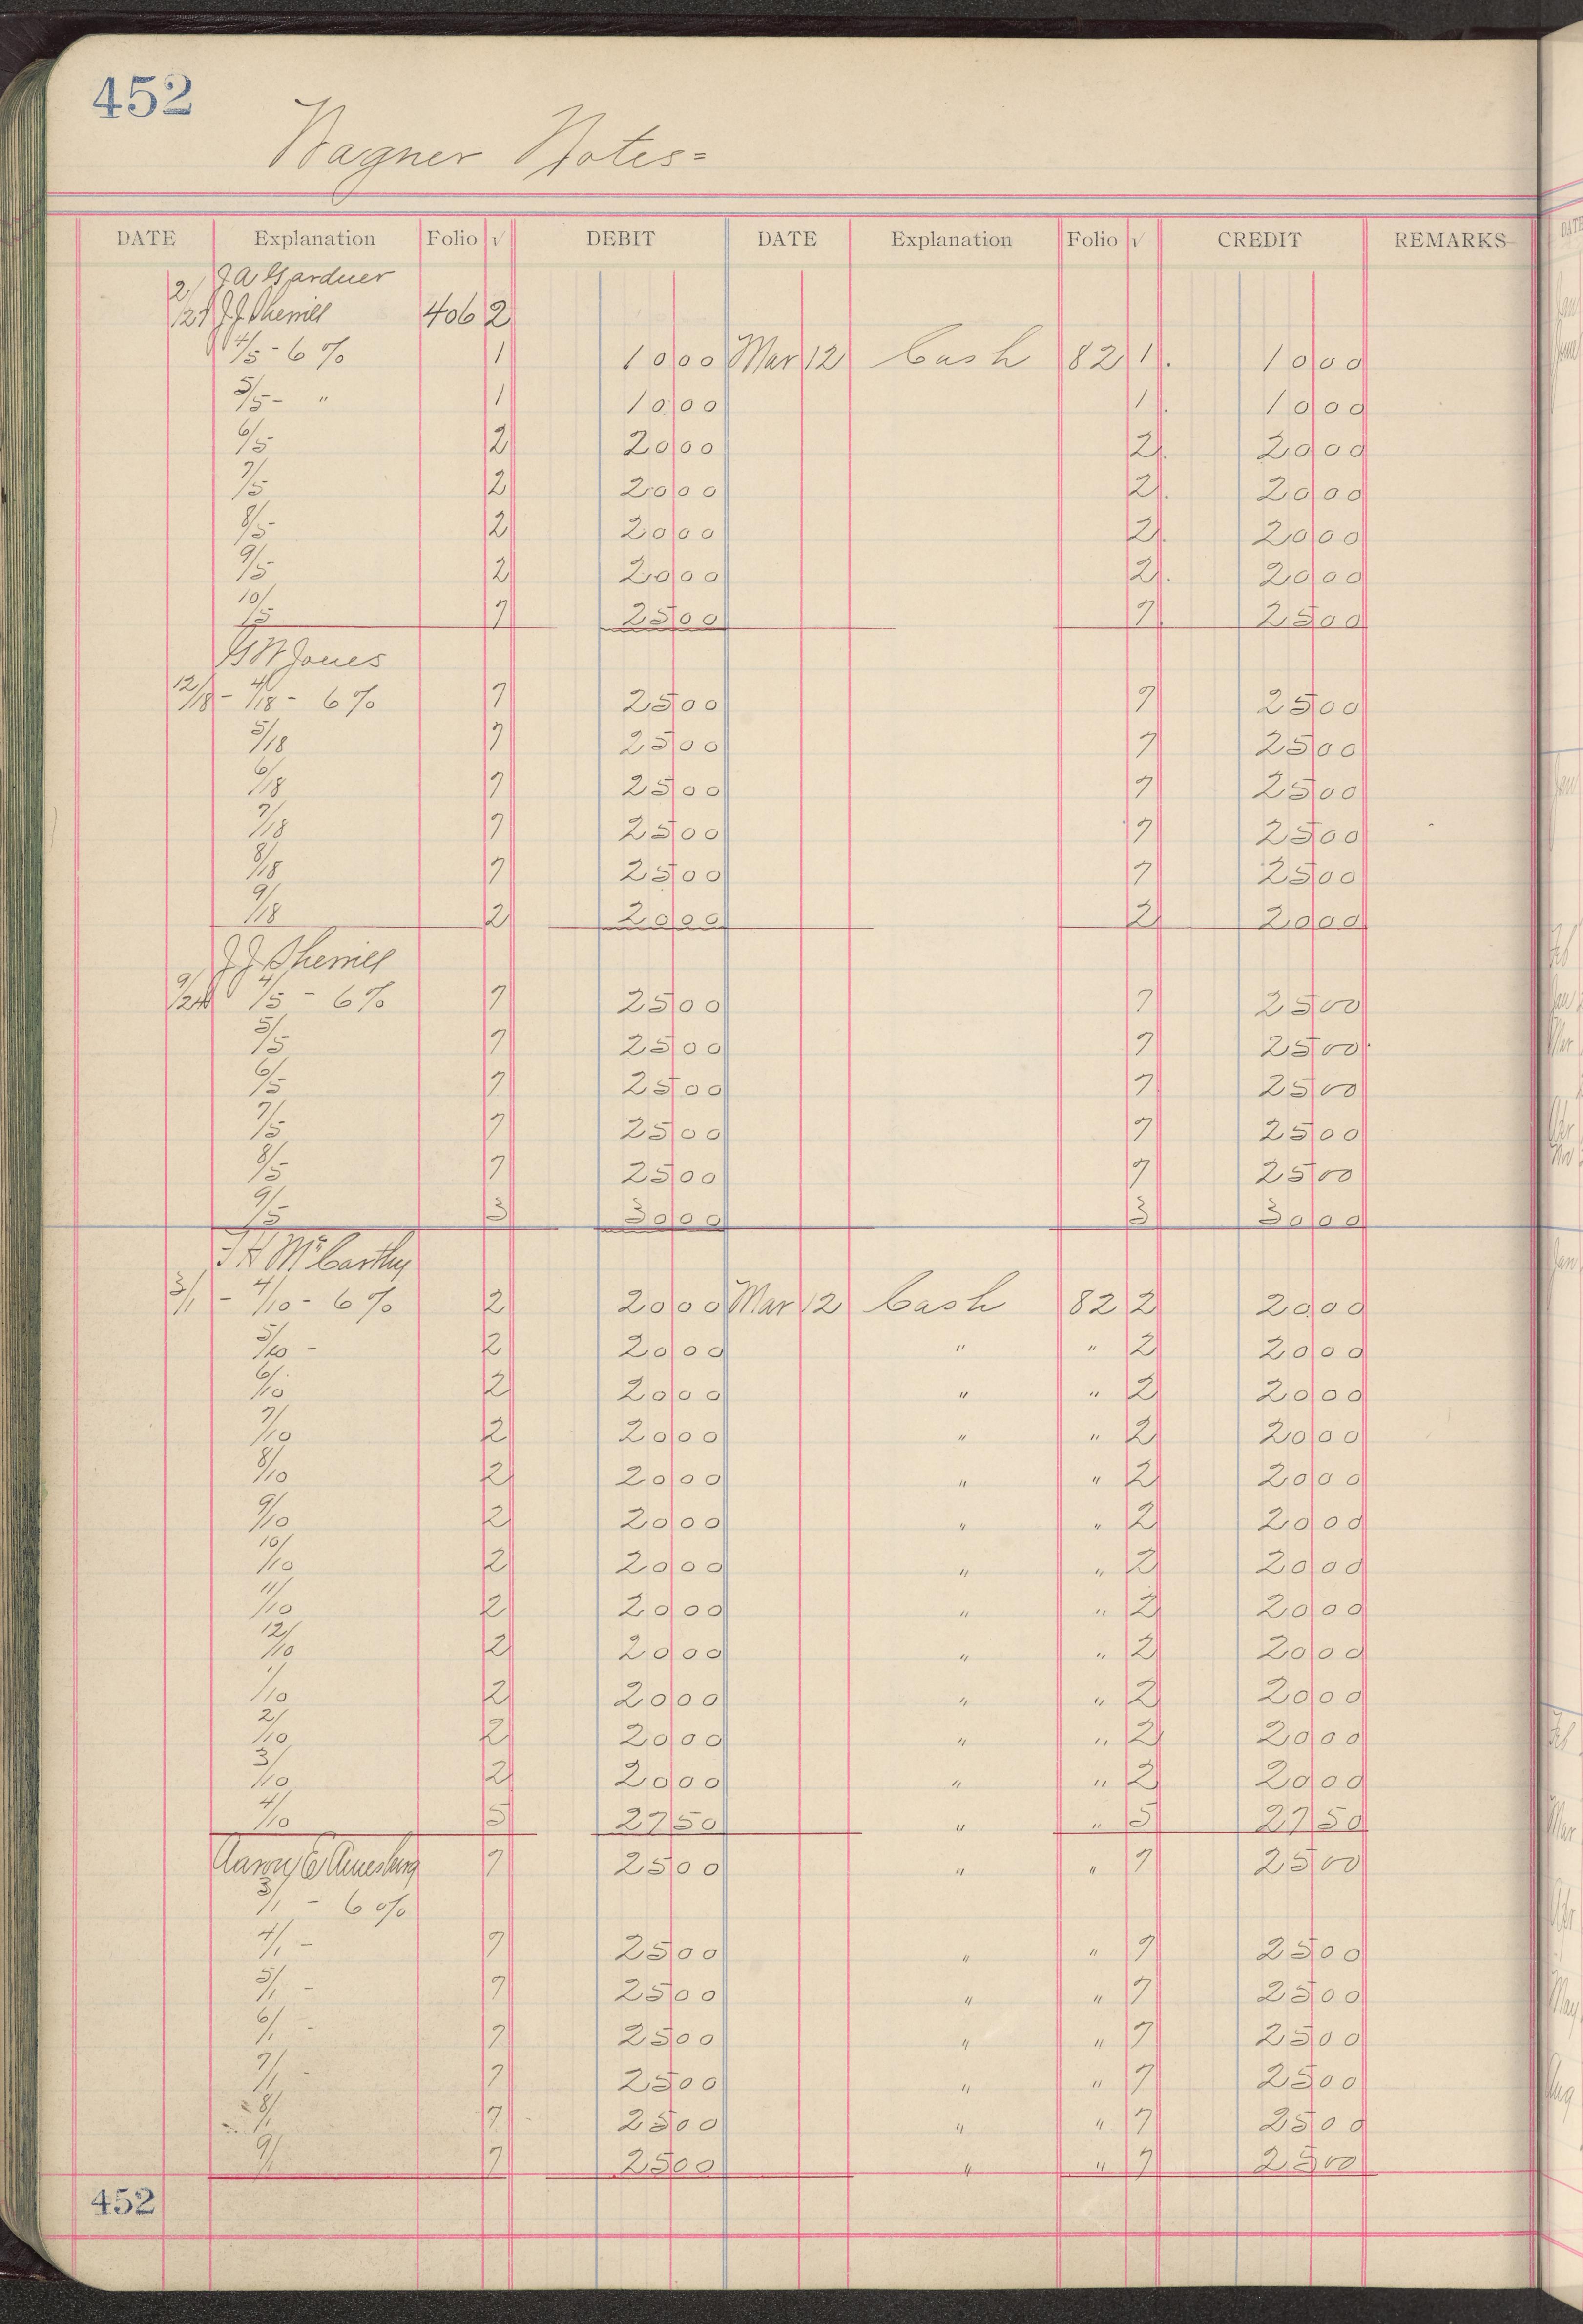 452
Wagner Notes=
DATE Explanation Folio √ DEBIT DATE Explanation Folio √ CREDIT REMARKS
2/ J A Gardner
/21 J J Sherrill 406 2
4/5 - 6 % 1 1000 Mar 12 Cash 82 1. 1000
5/5 - " 1 1000 1. 1000
6/5 2 2000 2. 2000
7/5 2 2000 2. 2000
8/5 2 2000 2. 2000
9/5 2 2000 2. 2000
10/5 7 2500 7. 2500
G W Jones
12/18 - 4/18 - 6 % 7 2500 7 2500
5/18 7 2500 7 2500
6/18 7 2500 7 2500
7/18 7 2500 7 2500
8/18 7 2500 7 2500
9/18 2 2000 2 2000
J J Sherrill
4/5 - 6 % 7 2500 7 2500
5/5 7 2500 7 2500
6/5 7 2500 7 2500
7/5 7 2500 7 2500
8/5 7 2500 7 2500
9/5 3 3000 3 3000
McCarthy
3/1 - 4/10 - 6 % 2 2000 Mar 12 Cash 82 2 2000
5/10 - 2 2000 " " 2 2000
6/10 2 2000 " " 2 2000
7/10 2 2000 " " 2 2000
8/10 2 2000 " " 2 2000
9/10 2 2000 " " 2 2000
10/10 2 2000 " " 2 2000
11/10 2 2000 " " 2 2000
12/10 2 2000 " " 2 2000
1/10 2 2000 " " 2 2000
2/10 2 2000 " " 2 2000
3/10 2 2000 " " 2 2000
4/10 5 2750 " " 5 2750
7 2500 " " 7 2500
3/1 - 6 %
4/1 - 7 2500 " " 7 2500
5/1 - 7 2500 " " 7 2500
6/1 - 7 2500 " " 7 2500
7/1 - 7 2500 " " 7 2500
8/1 7 2500 " " 7 2500
9/1 7 2500 " " 7 2500
452